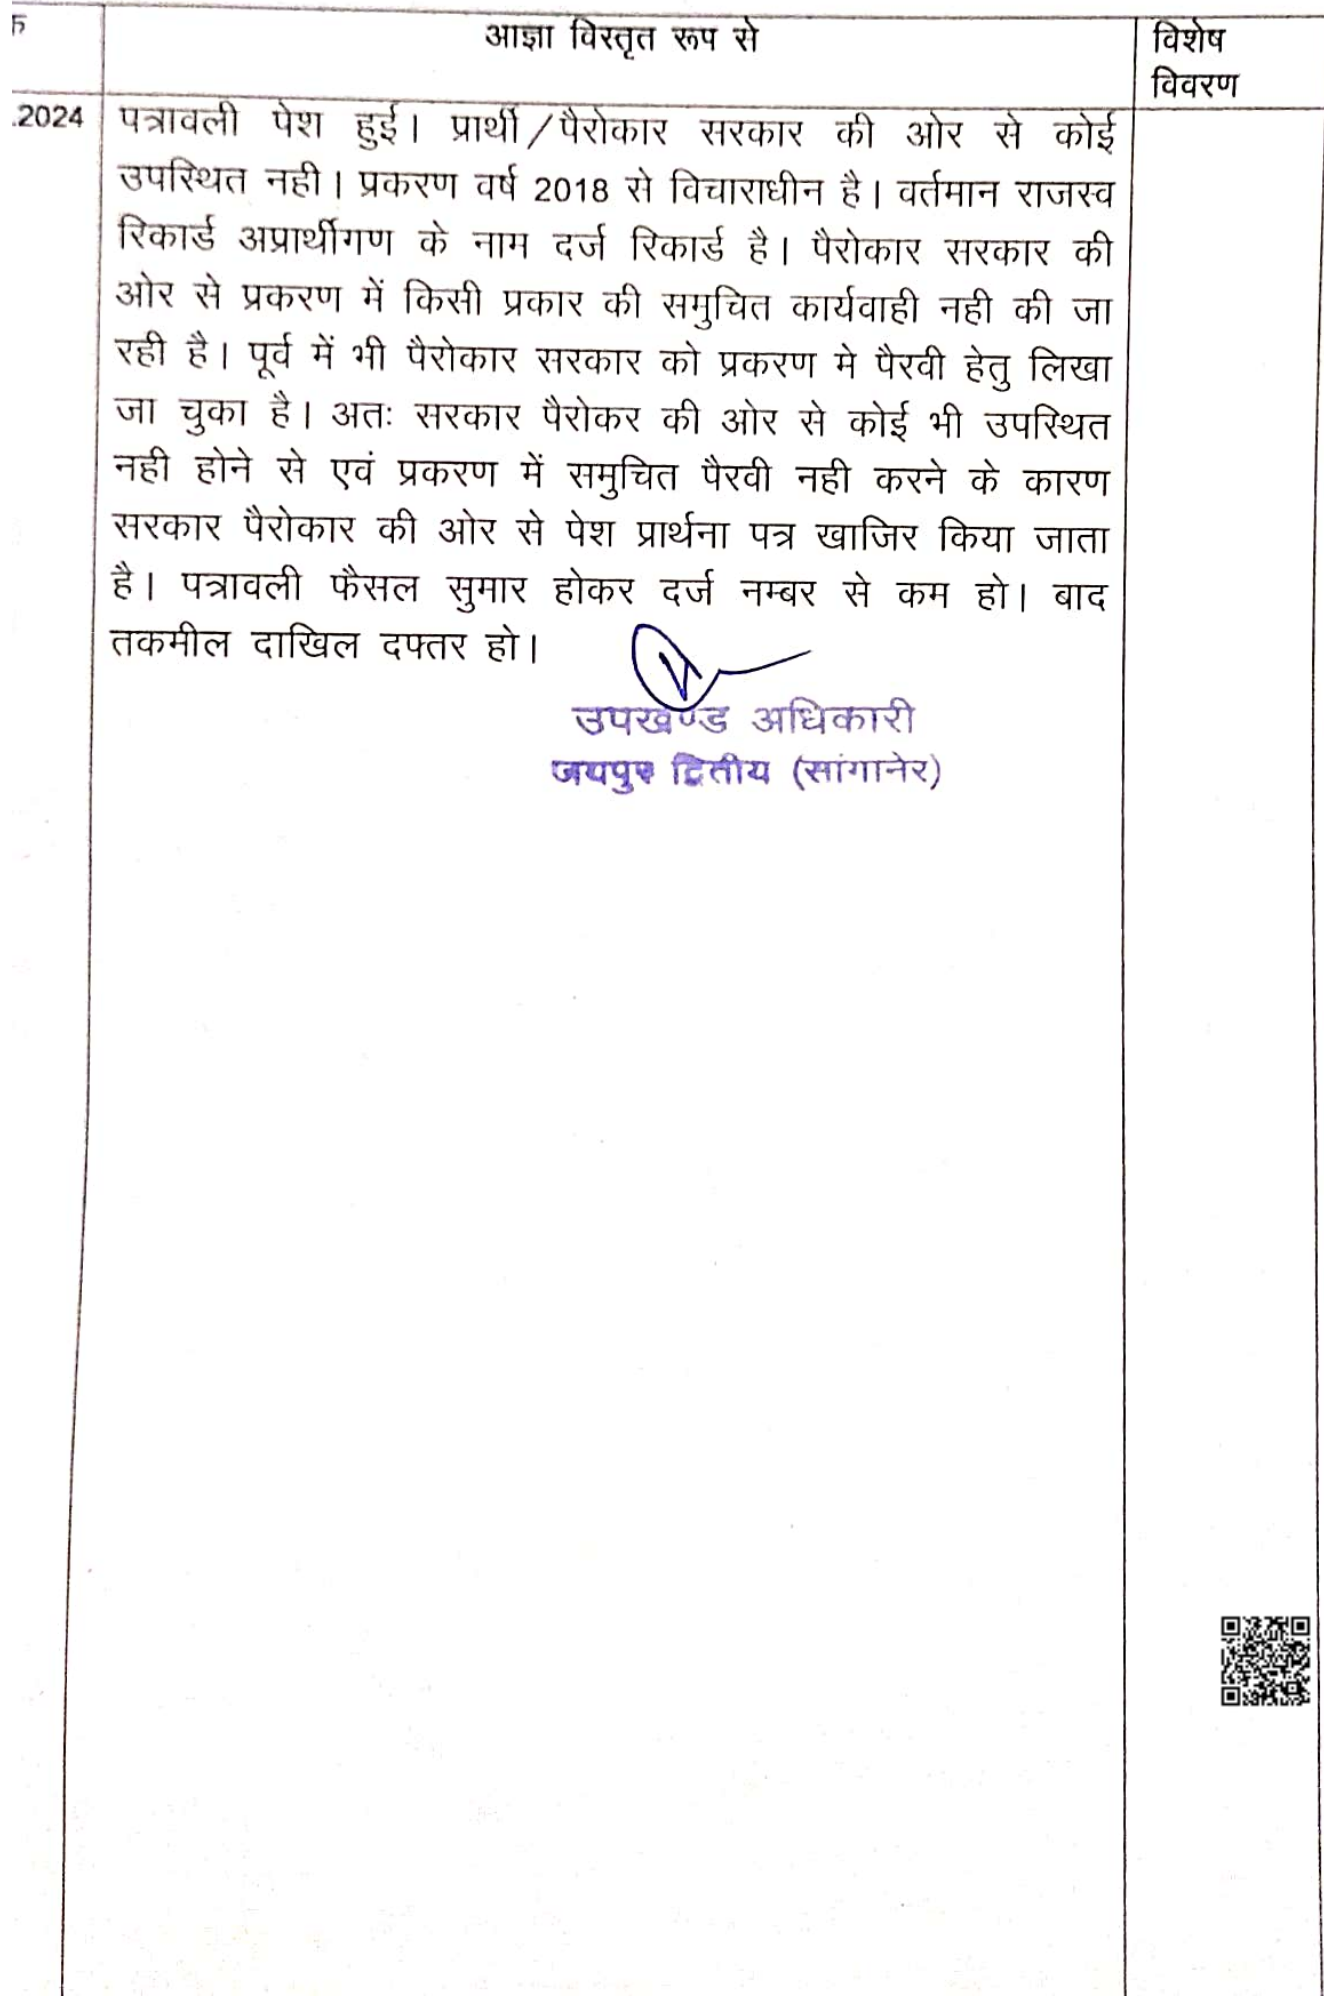 आज्ञा विस्तृत रूप से
विशेष
विवरण
.2024
पत्रावली पेश हुई। प्रार्थी/पैरोकार सरकार की ओर से कोई
उपस्थित नही। प्रकरण वर्ष 2018 से विचाराधीन है। वर्तमान राजस्व
रिकार्ड अप्रार्थीगण के नाम दर्ज रिकार्ड है। पैरोकार सरकार की
ओर से प्रकरण में किसी प्रकार की समुचित कार्यवाही नही की जा
रही है। पूर्व में भी पैरोकार सरकार को प्रकरण मे पैरवी हेतु लिखा
जा चुका है। अतः सरकार पैरोकर की ओर से कोई भी उपस्थित
नही होने से एवं प्रकरण में समुचित पैरवी नही करने के कारण
सरकार पैरोकार की ओर से पेश प्रार्थना पत्र खाजिर किया जाता
है। पत्रावली फैसल सुमार होकर दर्ज नम्बर से कम हो। बाद
तकमील दाखिल दफ्तर हो।
उपखण्ड अधिकारी
जयपुर द्वितीय (सांगानेर)